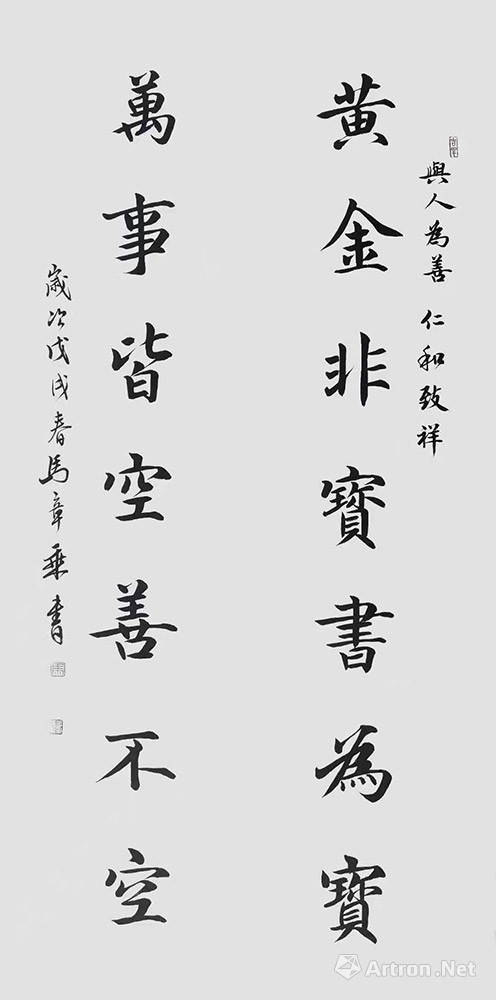 與人為善 仁和致祥
黃金非寶書為寶
萬事皆空善不空
歲次戊戌春馬章乘書
Artron.Net